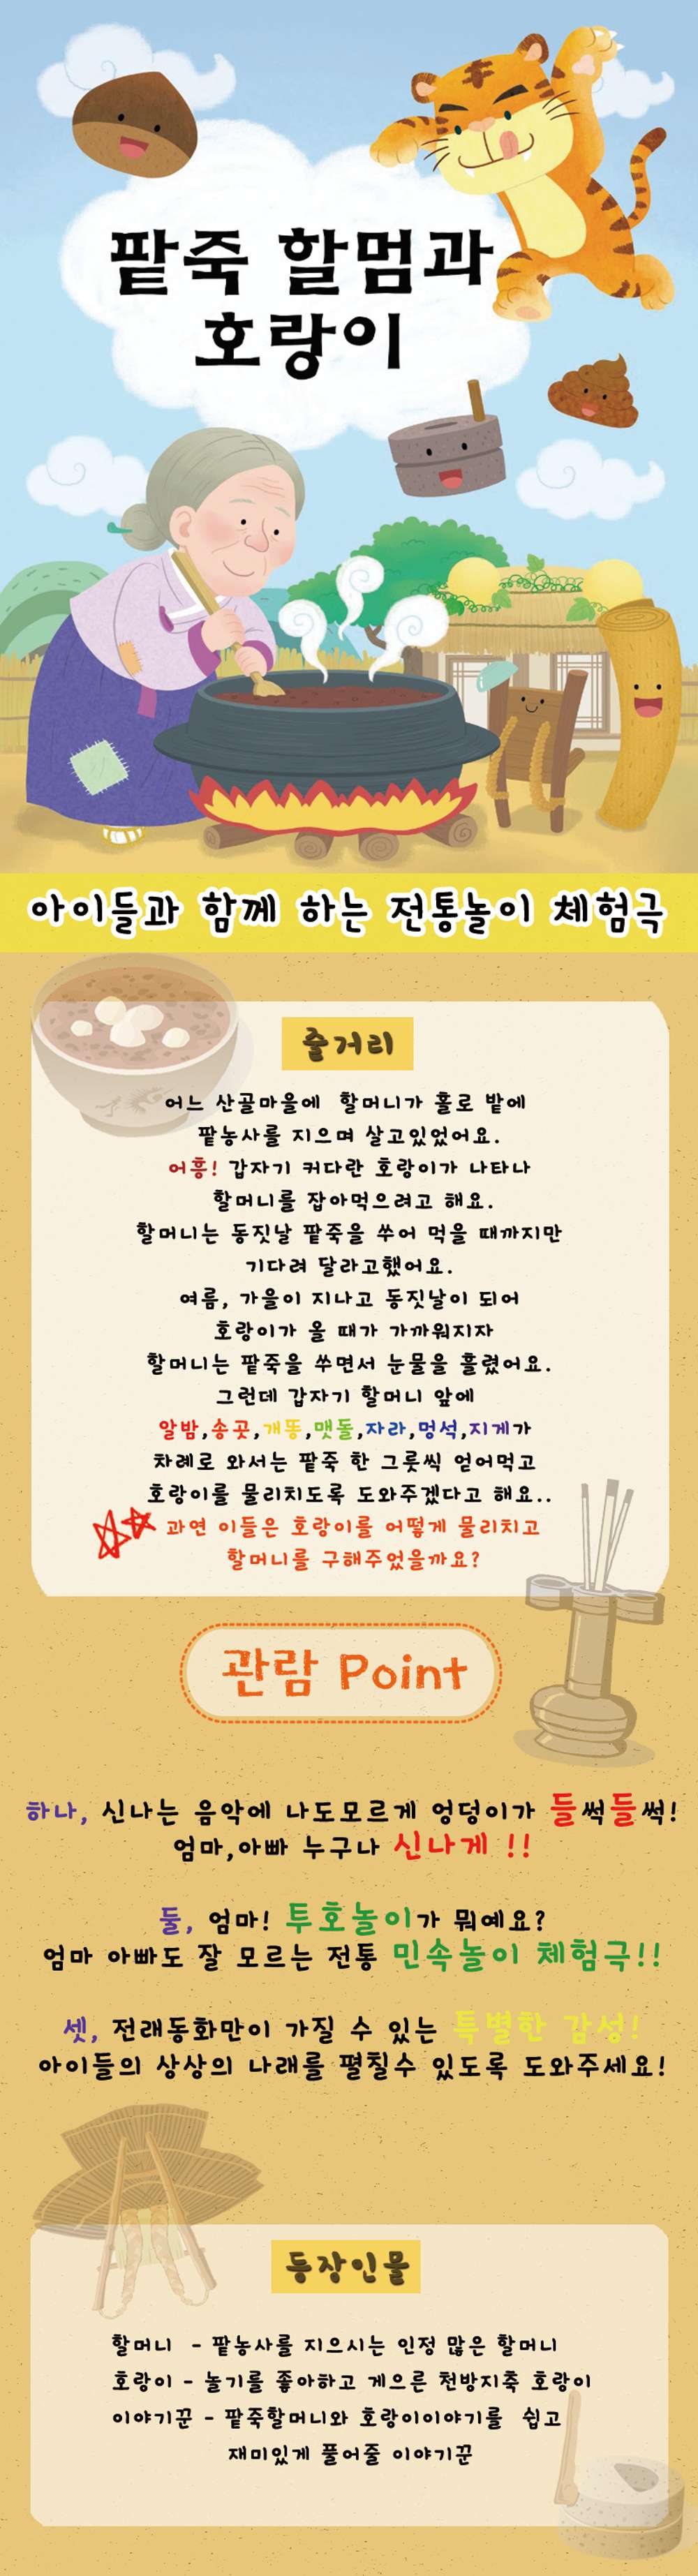 팥죽 할멈과
호랑이
아이들과 함께 하는 전통놀이 체험극
줄거리
어느 산골마을에 할머니가 홀로 밭에
팥농사를 지으며 살고있었어요.
어흥! 갑자기 커다란 호랑이가 나타나
할머니를 잡아먹으려고 해요.
할머니는 동짓날 팥죽을 쑤어 먹을 때까지만
기다려 달라고했어요.
여름, 가을이 지나고 동짓날이 되어
호랑이가 올 때가 가까워지자
할머니는 팥죽을 쑤면서 눈물을 흘렸어요.
그런데 갑자기 할머니 앞에
알밤,송곳,개똥,맷돌,자라,멍석,지게가
차례로 와서는 팥죽 한 그릇씩 얻어먹고
호랑이를 물리치도록 도와주겠다고 해요..
과연 이들은 호랑이를 어떻게 물리치고
할머니를 구해주었을까요?
관람 Point
하나, 신나는 음악에 나도모르게 엉덩이가 들썩들썩!
엄마,아빠 누구나 신나게 !!
둘, 엄마! 투호놀이가 뭐예요?
엄마 아빠도 잘 모르는 전통 민속놀이 체험극!!
셋, 전래동화만이 가질 수 있는 특별한 감성!
아이들의 상상의 나래를 펼칠수 있도록 도와주세요!
등장인물
할머니 - 팥농사를 지으시는 인정 많은 할머니
호랑이 - 놀기를 좋아하고 게으른 천방지축 호랑이
이야기꾼 - 팥죽할머니와 호랑이이야기를 쉽고
재미있게 풀어줄 이야기꾼